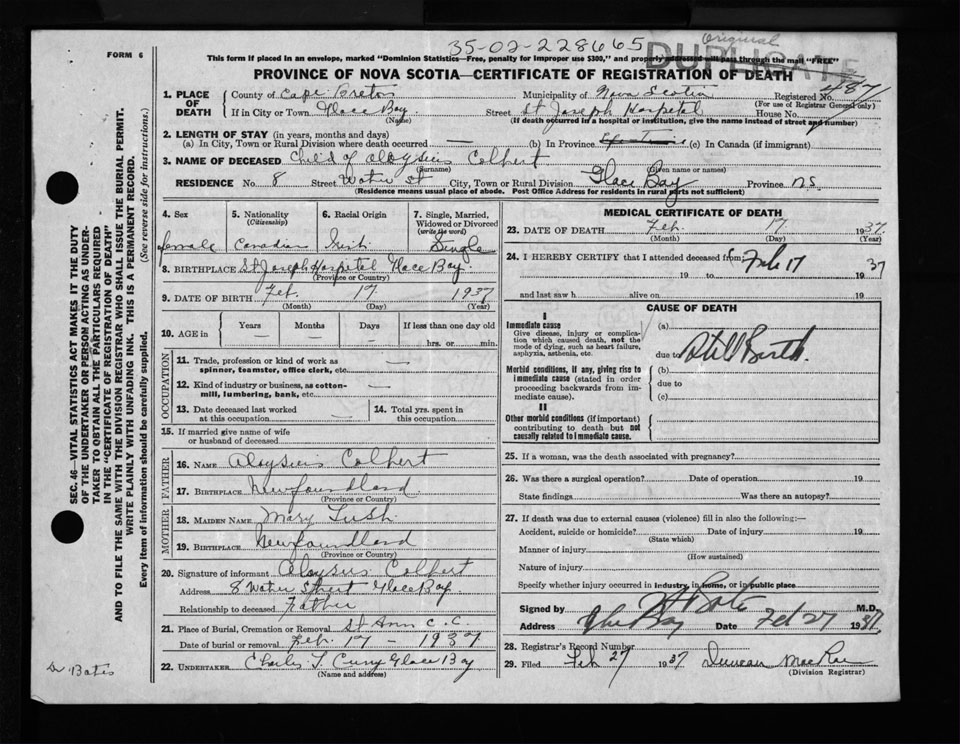 FORM 6
35-02-228665
Original
DUPLICATE
This form if placed in an envelope, marked "Dominion Statistics—Free, penalty for improper use $300," and properly addressed will pass through the mail "FREE"
PROVINCE OF NOVA SCOTIA—CERTIFICATE OF REGISTRATION OF DEATH
1. PLACE OF DEATH
County of Cape Breton Municipality of Nova Scotia Registered No. 487
(For use of Registrar General only)
If in City or Town Glace Bay. Street St Joseph Hospetal House No.
(Name) (If death occurred in a hospital or institution, give the name instead of street and number)
2. LENGTH OF STAY (in years, months and days)
(a) In City, Town or Rural Division where death occurred — (b) In Province (c) In Canada (if immigrant)
3. NAME OF DECEASED Child of Aloysius Colbert
(Surname) (Given name or names)
RESIDENCE No. 8 Street Water St City, Town or Rural Division Glace Bay Province N.S.
(Residence means usual place of abode. Post Office Address for residents in rural parts not sufficient)
4. Sex 5. Nationality (Citizenship) 6. Racial Origin 7. Single, Married, Widowed or Divorced (write the word)
female Canadian Irish Single
8. BIRTHPLACE St Joseph Hospetal Glace Bay.
(Province or Country)
9. DATE OF BIRTH Feb. 17 1937
(Month) (Day) (Year)
10. AGE in Years Months Days If less than one day old
— — — hrs. or min.
OCCUPATION
11. Trade, profession or kind of work as spinner, teamster, office clerk, etc. —
12. Kind of industry or business, as cotton-mill, lumbering, bank, etc. —
13. Date deceased last worked at this occupation — 14. Total yrs. spent in this occupation
15. If married give name of wife or husband of deceased
FATHER
16. NAME Aloysius Colbert
17. BIRTHPLACE Newfoundland
(Province or Country)
MOTHER
18. MAIDEN NAME Mary Lush
19. BIRTHPLACE Newfoundland
(Province or Country)
20. Signature of informant Aloysius Colbert
Address 8 Water Street Glace Bay
Relationship to deceased Father
21. Place of Burial, Cremation or Removal St Ann C.C
Date of burial or removal Feb. 17 - 1937
22. UNDERTAKER Charles T. Curry Glace Bay
(Name and address)
MEDICAL CERTIFICATE OF DEATH
23. DATE OF DEATH Feb. 17 1937.
(Month) (Day) (Year)
24. I HEREBY CERTIFY that I attended deceased from Feb 17 37
19 to 19
and last saw h alive on 19
CAUSE OF DEATH
I
Immediate cause
Give disease, injury or complication which caused death, not the mode of dying, such as heart failure, asphyxia, asthenia, etc.
(a)
due to Still Birth.
Morbid conditions, if any, giving rise to immediate cause (stated in order proceeding backwards from immediate cause).
(b)
due to
(c)
II
Other morbid conditions (if important) contributing to death but not causally related to immediate cause.
25. If a woman, was the death associated with pregnancy?
26. Was there a surgical operation? Date of operation 19
State findings Was there an autopsy?
27. If death was due to external causes (violence) fill in also the following:—
Accident, suicide or homicide? Date of injury 19
(State which)
Manner of injury
(How sustained)
Nature of injury
Specify whether injury occurred in industry, in home, or in public place
Signed by Bates M.D.
Address Glace Bay Date Feb 27 1937
28. Registrar's Record Number
29. Filed Feb 27 1937 Duncan MacRae
(Division Registrar)
SEC. 46—VITAL STATISTICS ACT MAKES IT THE DUTY
OF THE UNDERTAKER OR PERSON ACTING AS UNDER-
TAKER TO OBTAIN ALL THE PARTICULARS REQUIRED
IN THE "CERTIFICATE OF REGISTRATION OF DEATH"
AND TO FILE THE SAME WITH THE DIVISION REGISTRAR WHO SHALL ISSUE THE BURIAL PERMIT.
WRITE PLAINLY WITH UNFADING INK. THIS IS A PERMANENT RECORD.
Every item of information should be carefully supplied. (See reverse side for instructions.)
Dr Bates